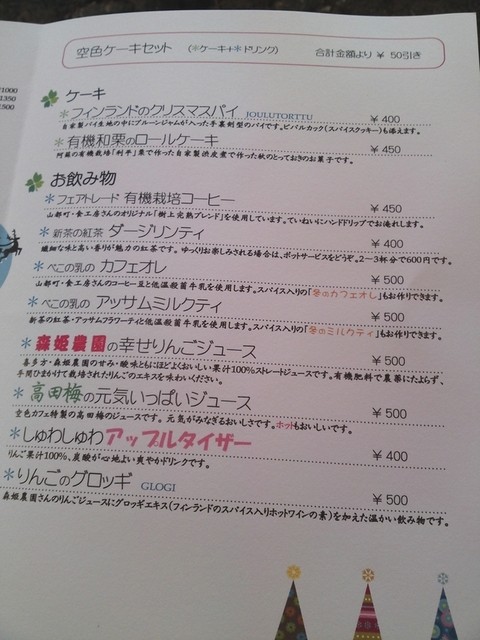 空色ケーキセット (*ケーキ+*ドリンク) 合計金額より ¥ 50引き
¥1000
1350
¥500
ケーキ
*フィンランドのクリスマスパイ JOULUTORTTU ¥ 400
自家製パイ生地の中にプルーンジャムが入った手裏剣型のパイです。ピパルカック(スパイスクッキー)も添えます。
*有機和栗のロールケーキ ¥ 450
阿蘇の有機栽培「利平」栗で作った自家製渋皮煮で作った秋のとっておきのお菓子です。
お飲み物
*フェアトレード 有機栽培コーヒー ¥ 450
山都町・食工房さんのオリジナル「樹上完熟ブレンド」を使用しています。ていねいにハンドドリップでお淹れします。
*新茶の紅茶 ダージリンティ ¥ 400
繊細な味と高い香りが魅力の紅茶です。ゆっくりお楽しみされる場合は、ポットサービスをどうぞ。2-3杯分で600円です。
*べこの乳の カフェオレ ¥ 500
山都町・食工房さんのコーヒー豆と低温殺菌牛乳を使用します。スパイス入りの「冬のカフェオレ」もお作りできます。
*べこの乳の アッサムミルクティ ¥ 500
新茶の紅茶・アッサムフラワーティと低温殺菌牛乳を使用します。スパイス入りの「冬のミルクティ」もお作りできます。
*森姫農園の幸せりんごジュース ¥ 500
喜多方・森姫農園のせみ・酸味ともにほどよくおいしい果汁100%ストレートジュースです。有機肥料で農薬にたよらず、
手間ひまかけて栽培されたりんごのエキスを味わいください。
*高田梅の元気いっぱいジュース ¥ 500
空色カフェ特製の高田梅のジュースです。元気がみなぎるおいしさです。ホットもおいしいです。
*しゅわしゅわアップルタイザー ¥ 400
りんご果汁100%、炭酸が心地よい爽やかドリンクです。
*りんごのグロッギ GLOGI ¥ 500
森姫農園さんのりんごジュースにグロッギエキス(フィンランドのスパイス入りホットワインの素)を加えた温かい飲み物です。